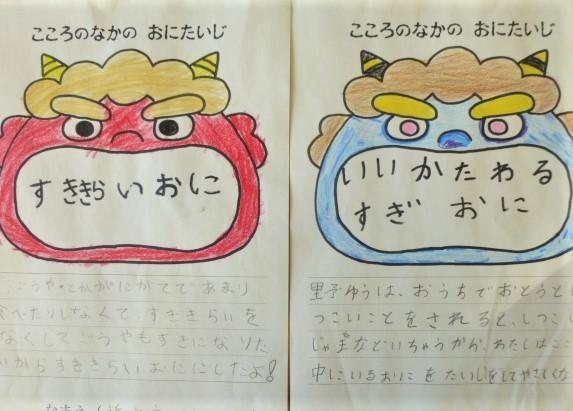 こころのなかの おにたいじ
すききらいおに
ごうや・とかがにがてであまり
食べたりしなくて、すききらいを
なくしてごうやもすきになりた
いからすききらいおににしたよ!
こころのなかの おにたいじ
いいかたわる
すぎ おに
野子ゆうは、おうちでおとうと
つこいことをされると、しつこい
じゃまなどいちゃうから、わたしはここ
中にいるおにをたいじをしてやさしくな